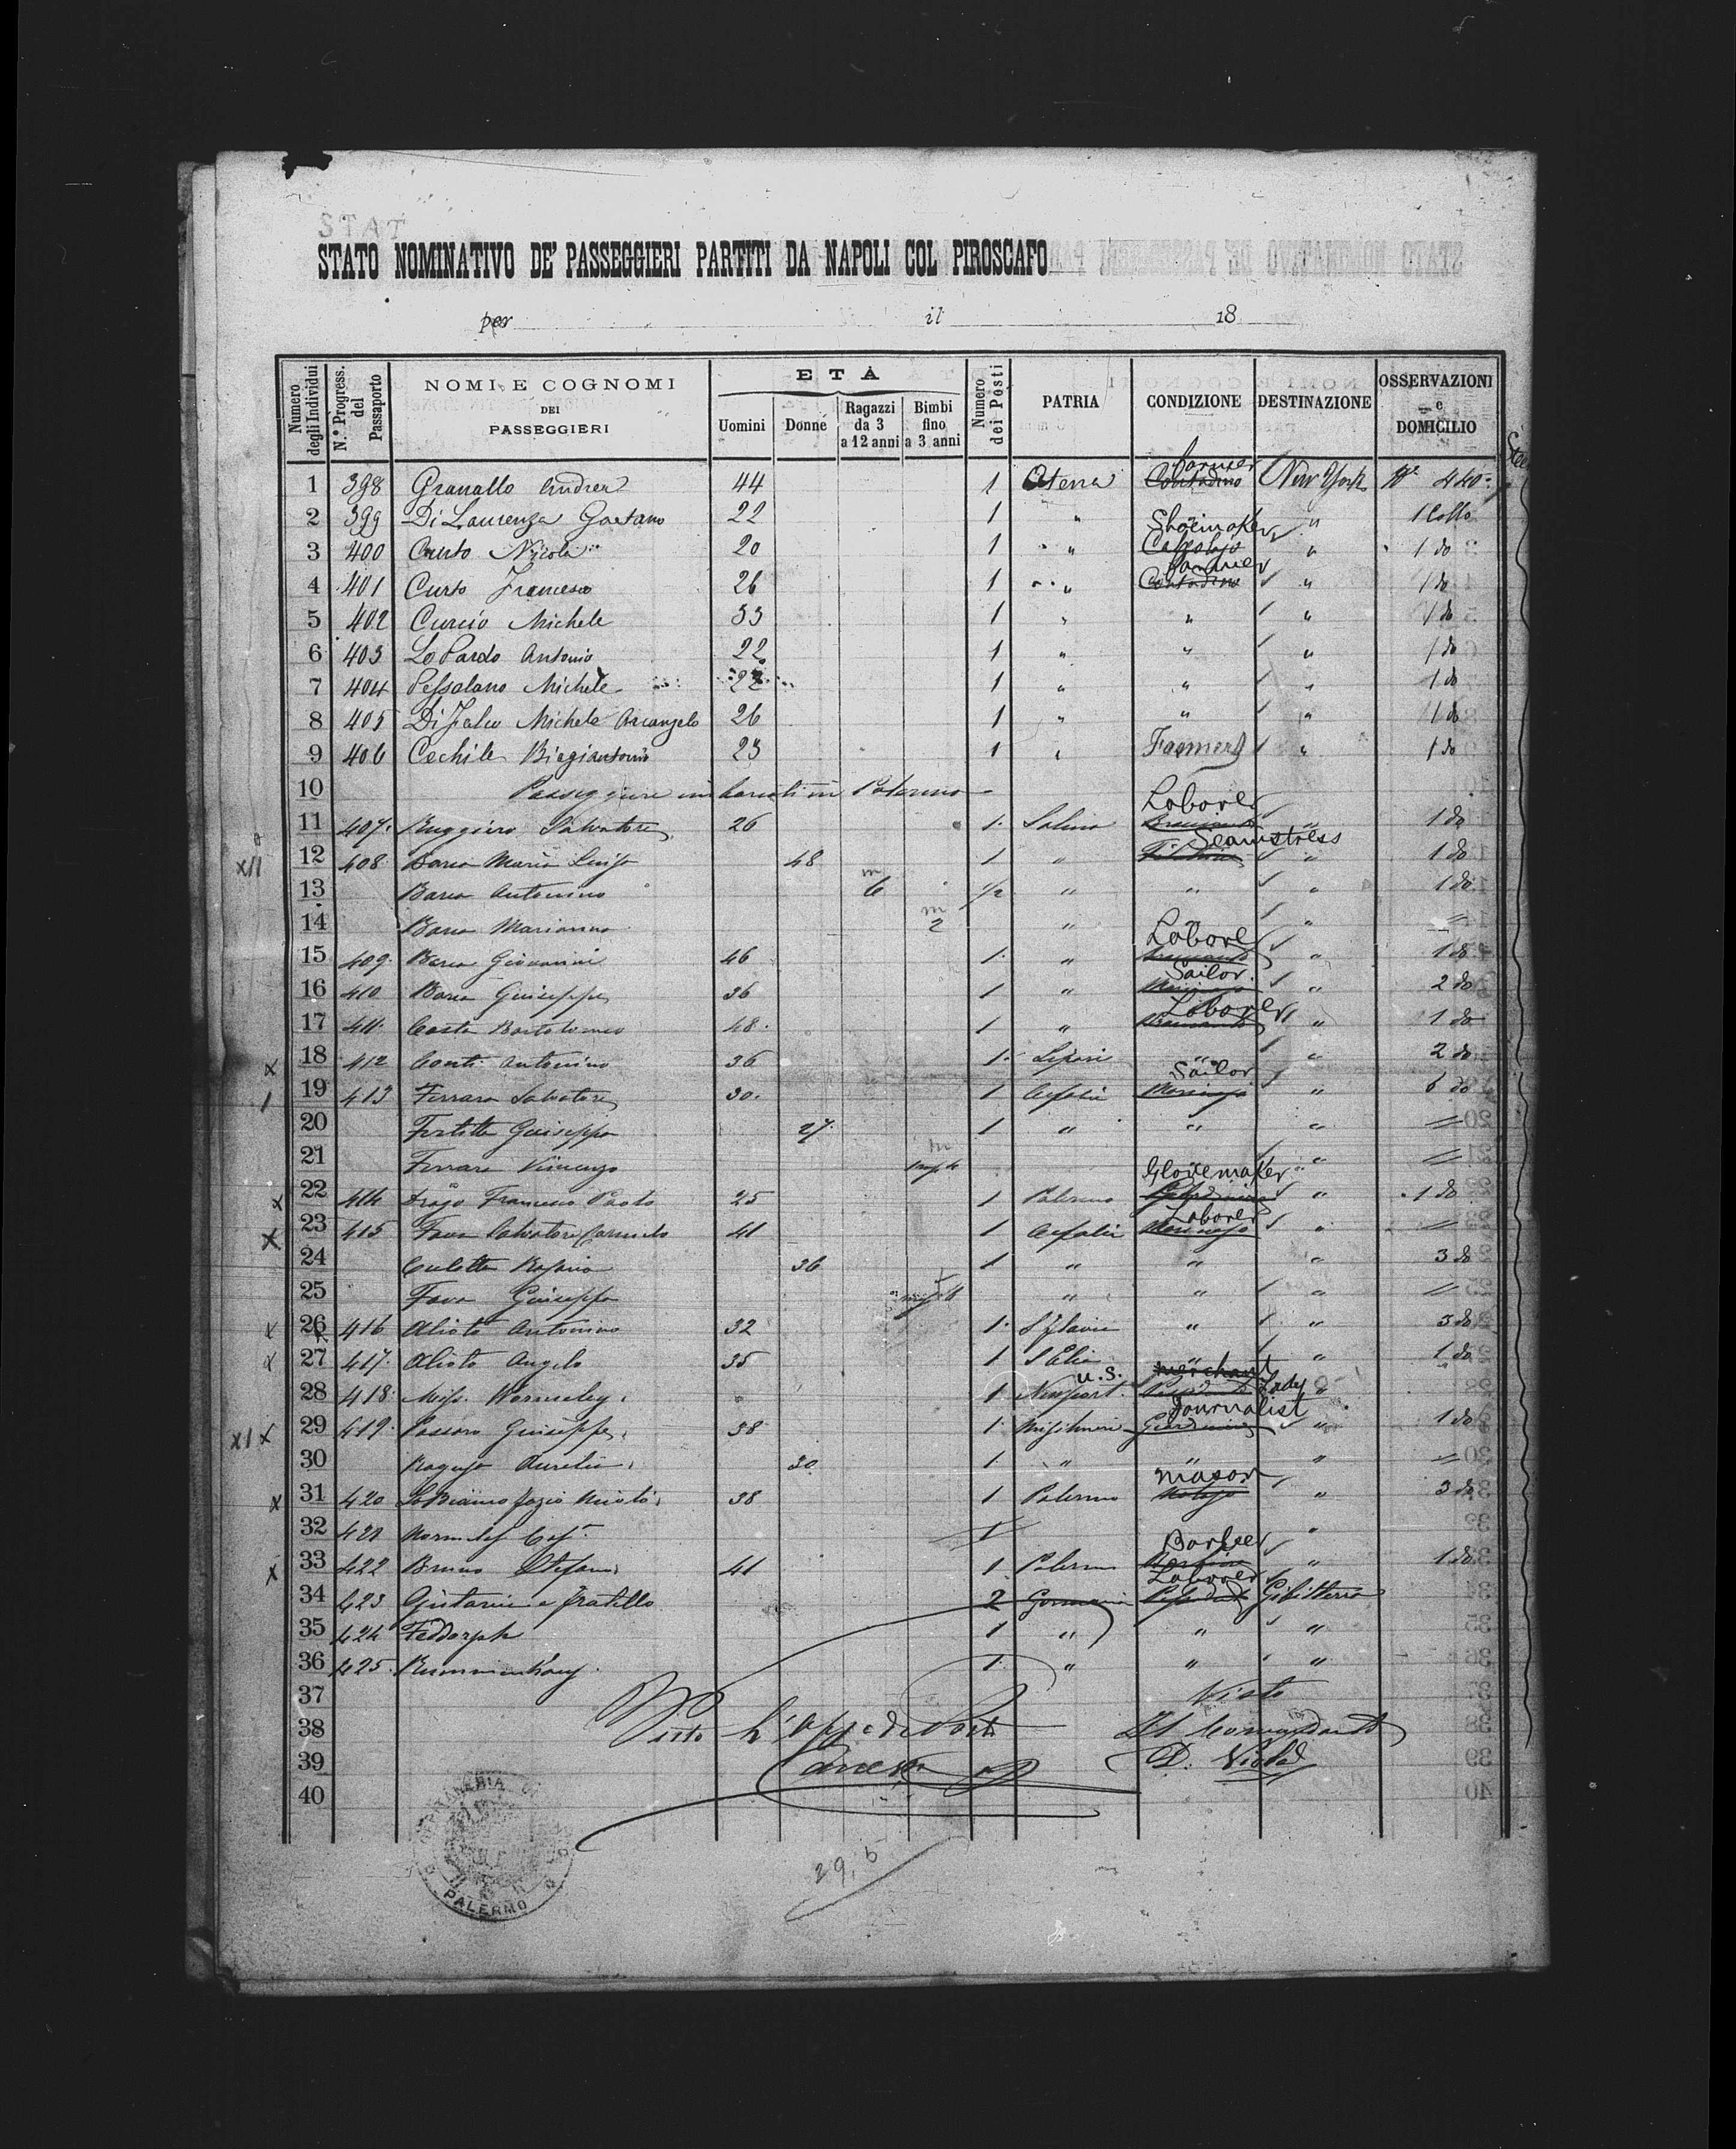 STAT
STATO NOMINATIVO DE' PASSEGGIERI PARTITI DA NAPOLI COL PIROSCAFO
per il 18
Numero degli Individui N.° Progress. del Passaporto NOMI E COGNOMI DEI PASSEGGIERI ETÀ Uomini Donne Ragazzi da 3 a 12 anni Bimbi fino a 3 anni Numero dei Posti PATRIA CONDIZIONE DESTINAZIONE OSSERVAZIONI e DOMICILIO
1 398 Granallo Andrea 44 1 Atena Contadino farmer New York 440
2 399 Di Laurenza Gaetano 22 1 " " " 1 Collo
3 400 Curto Nicola 20 1 " Calzolajo Shoemaker " 1 do
4 401 Curto Francesco 26 1 " Contadino farmer " 1 do
5 402 Curcio Michele 33 1 " " " 1 do
6 403 Lo Pardo Antonio 22 1 " " " 1 do
7 404 Pessolano Michele 22 1 " " " 1 do
8 405 Di Falco Michele Arcangelo 26 1 " " " 1 do
9 406 Cechile Biagiantonio 23 1 " Farmers " 1 do
10 Passeggieri imbarcati in Palermo
11 407 Ruggiero Salvatore 26 1 Salina Laborer " 1 do
12 408 Barca Maria Luisa 48 1 " Seamstress " 1 do
13 Barca Antonino m 6 1/2 " " " 1 do
14 Barca Marianno m 2 " " "
15 409 Barca Giovanni 46 1 " Laborer " 1 do
16 410 Barca Giuseppe 36 1 " Marinajo Sailor " 2 do
17 411 Costa Bartolomeo 48 1 " Laborer " 1 do
18 412 Conti Antonino 36 1 Lipari " " 2 do
19 413 Ferrara Salvatore 30 1 Cefalù Marinajo Sailor " 6 do
20 Fertitta Giuseppa 27 1 " " "
21 Ferrara Vincenzo m "
22 414 Francesco Paolo 25 1 Palermo Glovemaker " 1 do
23 415 Fava Salvatore Carmelo 41 1 Cefalù Marinajo Laborer "
24 Culotta Rosaria 36 1 " " " 3 do
25 Fava Giuseppa " " "
26 416 Alioto Antonino 32 1 S Flavia " " 3 do
27 417 Alioto Angelo 35 1 S Elia " " 1 do
28 418 Miss Wormeley 1 Newport U.S. merchant Lady "
29 419 Passaro Giuseppe 38 1 Misilmeri Journalist " 1 do
30 Ragusa Aurelia 30 1 " " "
31 420 Lo Bianco Fazio Nicolò 38 1 Palermo mason " 3 do
32 421 1 "
33 422 Bruno Stefano 41 1 Palermo Barber " 1 do
34 423 e fratello 2 Germania Laborer Gibilterra
35 424 Feddorph 1 " " "
36 425 1 " " "
37 Visto
38 Visto Il Comandante
39
40
PALERMO
29,5